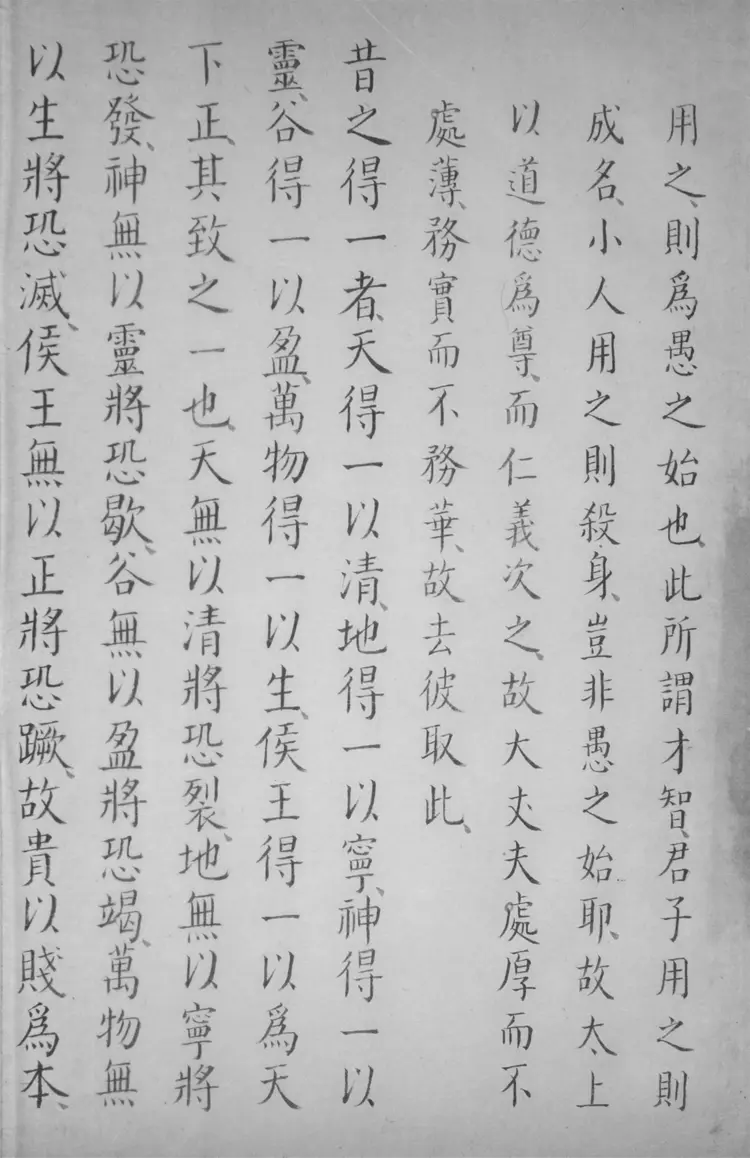 用之、則爲愚之始也、此所謂才智、君子用之則
成名、小人用之則殺身、豈非愚之始耶、故太上
以道德爲尊、而仁義次之、故大丈夫處厚而不
處薄、務實而不務華、故去彼取此、
昔之得一者、天得一以清、地得一以寧、神得一以
靈、谷得一以盈、萬物得一以生、侯王得一以爲天
下正、其致之一也、天無以清將恐裂、地無以寧將
恐發、神無以靈將恐歇、谷無以盈將恐竭、萬物無
以生將恐滅、侯王無以正將恐蹶、故貴以賤爲本、